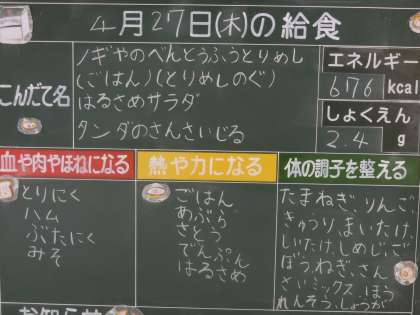 4月27日(木)の給食
こんだて名
ノギやのべんとうふうとりめし
(ごはん)(とりめしのぐ)
はるさめサラダ
タンダのさんさいじる
エネルギー
676 kcal
しょくえん
2.4 g
血や肉やほねになる
とりにく
ハム
ぶたにく
みそ
熱や力になる
ごはん
あぶら
さとう
でんぷん
はるさめ
体の調子を整える
たまねぎ、りんご
きゅうり、まいたけ、
しいたけ、しめじ、ご
ぼう、ねぎ、さん
さいミックス、ほう
れんそう、しょうが
お知らせ